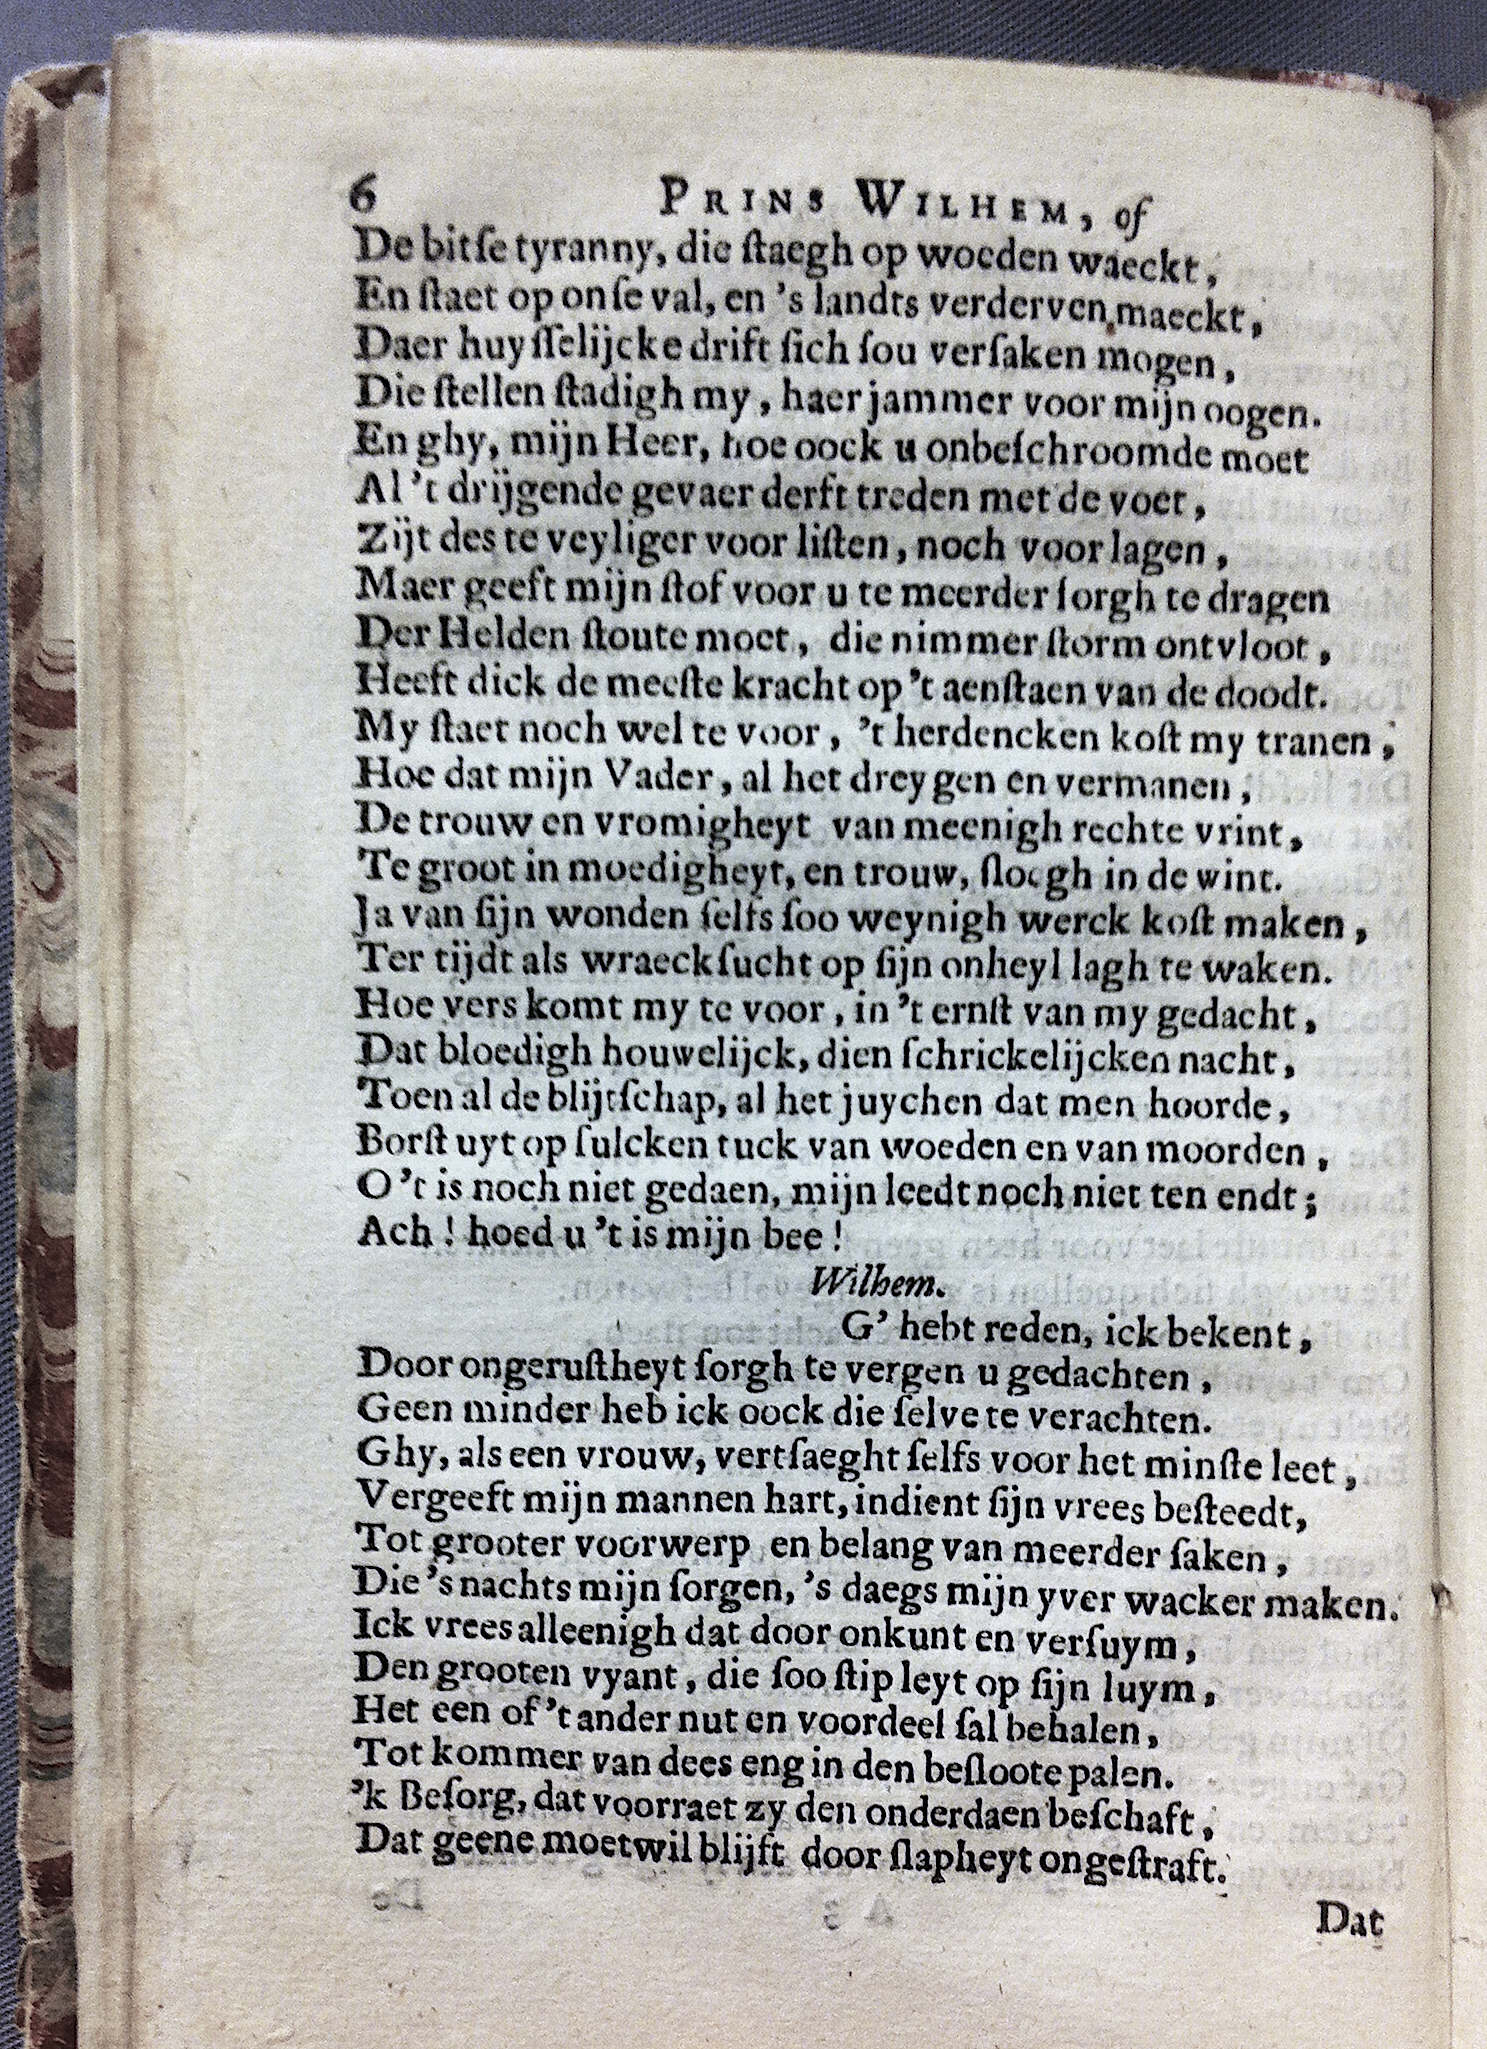 6 PRINS WILHEM, of
De bitſe tyranny, die ſtaegh op woeden waeckt,
En ſtaet op onſe val, en 's landts verderven maeckt,
Daer huyſſelijcke drift ſich ſou verſaken mogen,
Die ſtellen ſtadigh my, haer jammer voor mijn oogen.
En ghy, mijn Heer, hoe oock u onbeſchroomde moet
Al 't drijgende gevaer derft treden met de voet,
Zijt des te veyliger voor liſten, noch voor lagen,
Maer geeft mijn ſtof voor u te meerder ſorgh te dragen
Der Helden ſtoute moet, die nimmer ſtorm ontvloot,
Heeft dick de meeſte kracht op 't aenſtaen van de doodt.
My ſtaet noch wel te voor, 't herdencken koſt my tranen,
Hoe dat mijn Vader, al het dreygen en vermanen,
De trouw en vromigheyt van meenigh rechte vrint,
Te groot in moedigheyt, en trouw, ſloegh in de wint.
Ja van ſijn wonden ſelfs ſoo weynigh werck koſt maken,
Ter tijdt als wraeckſucht op ſijn onheyl lagh te waken.
Hoe vers komt my te voor, in 't ernſt van my gedacht,
Dat bloedigh houwelijck, dien ſchrickelijcken nacht,
Toen al de blijtſchap, al het juychen dat men hoorde,
Borſt uyt op ſulcken tuck van woeden en van moorden,
O 't is noch niet gedaen, mijn leedt noch niet ten endt;
Ach! hoed u 't is mijn bee!
Wilhem.
G' hebt reden, ick bekent,
Door ongeruſtheyt ſorgh te vergen u gedachten,
Geen minder heb ick oock die ſelve te verachten.
Ghy, als een vrouw, vertſaeght ſelfs voor het minſte leet,
Vergeeft mijn mannen hart, indient ſijn vrees beſteedt,
Tot grooter voorwerp en belang van meerder ſaken,
Die 's nachts mijn ſorgen, 's daegs mijn yver wacker maken.
Ick vrees alleenigh dat door onkunt en verſuym,
Den grooten vyant, die ſoo ſtip leyt op ſijn luym,
Het een of 't ander nut en voordeel ſal behalen,
Tot kommer van dees eng in den beſloote palen.
'k Beſorg, dat voorraet zy den onderdaen beſchaft,
Dat geene moetwil blijft door ſlapheyt ongeſtraft.
Dat